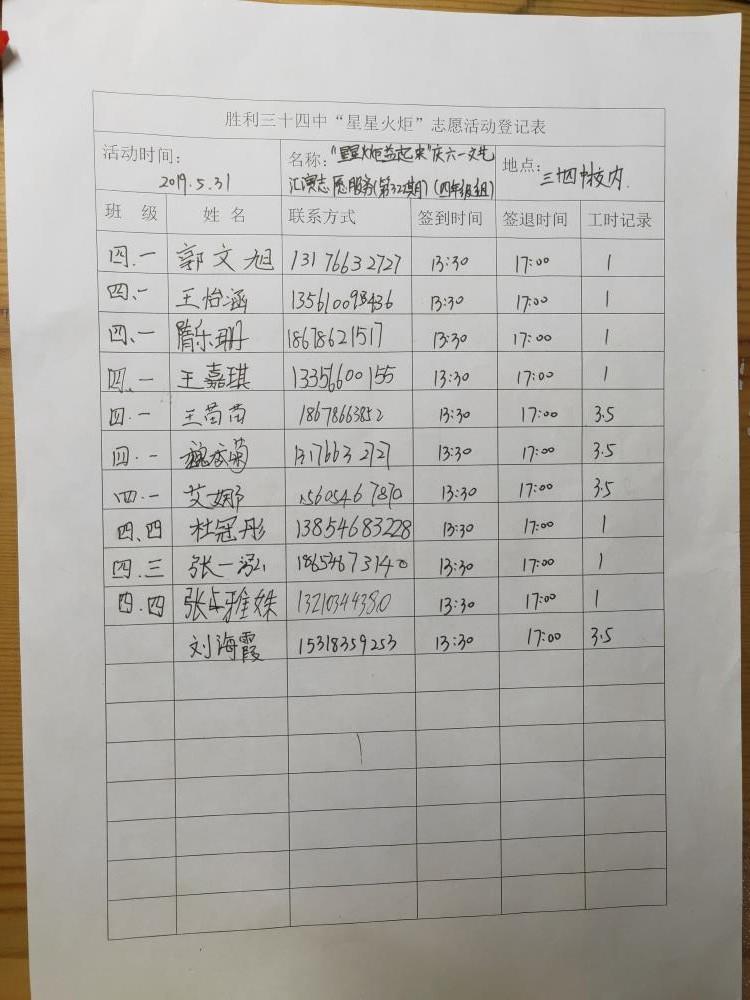 胜利三十四中“星星火炬”志愿活动登记表
活动时间： 名称：“星星火炬益起来”庆六一文艺 地点：三十四中校内.
2019.5.31 汇演志愿服务(第322期)(四年级组)
班 级 姓 名 联系方式 签到时间 签退时间 工时记录
四.一 郭文旭 13176632727 13:30 17:00 1
四、一 王怡涵 135610098436 13:30 17:00 1
四、一 隋乐玥 18678621517 13:30 17:00 1
四、一 王嘉琪 13356600155 13:30 17:00 1
四.一 王苗苗 18678663852 13:30 17:00 3.5
四.一 13176632727 13:30 17:00 3.5
四.一 艾娜 15605467870 13:30 17:00 3.5
四、四 杜冠彤 13854683228 13:30 17:00 1
四.三 张一泓 18654673140 13:30 17:00 1
四.四 张卓雅姝 13210344380 13:30 17:00 1
刘海霞 15318359253 13:30 17:00 3.5